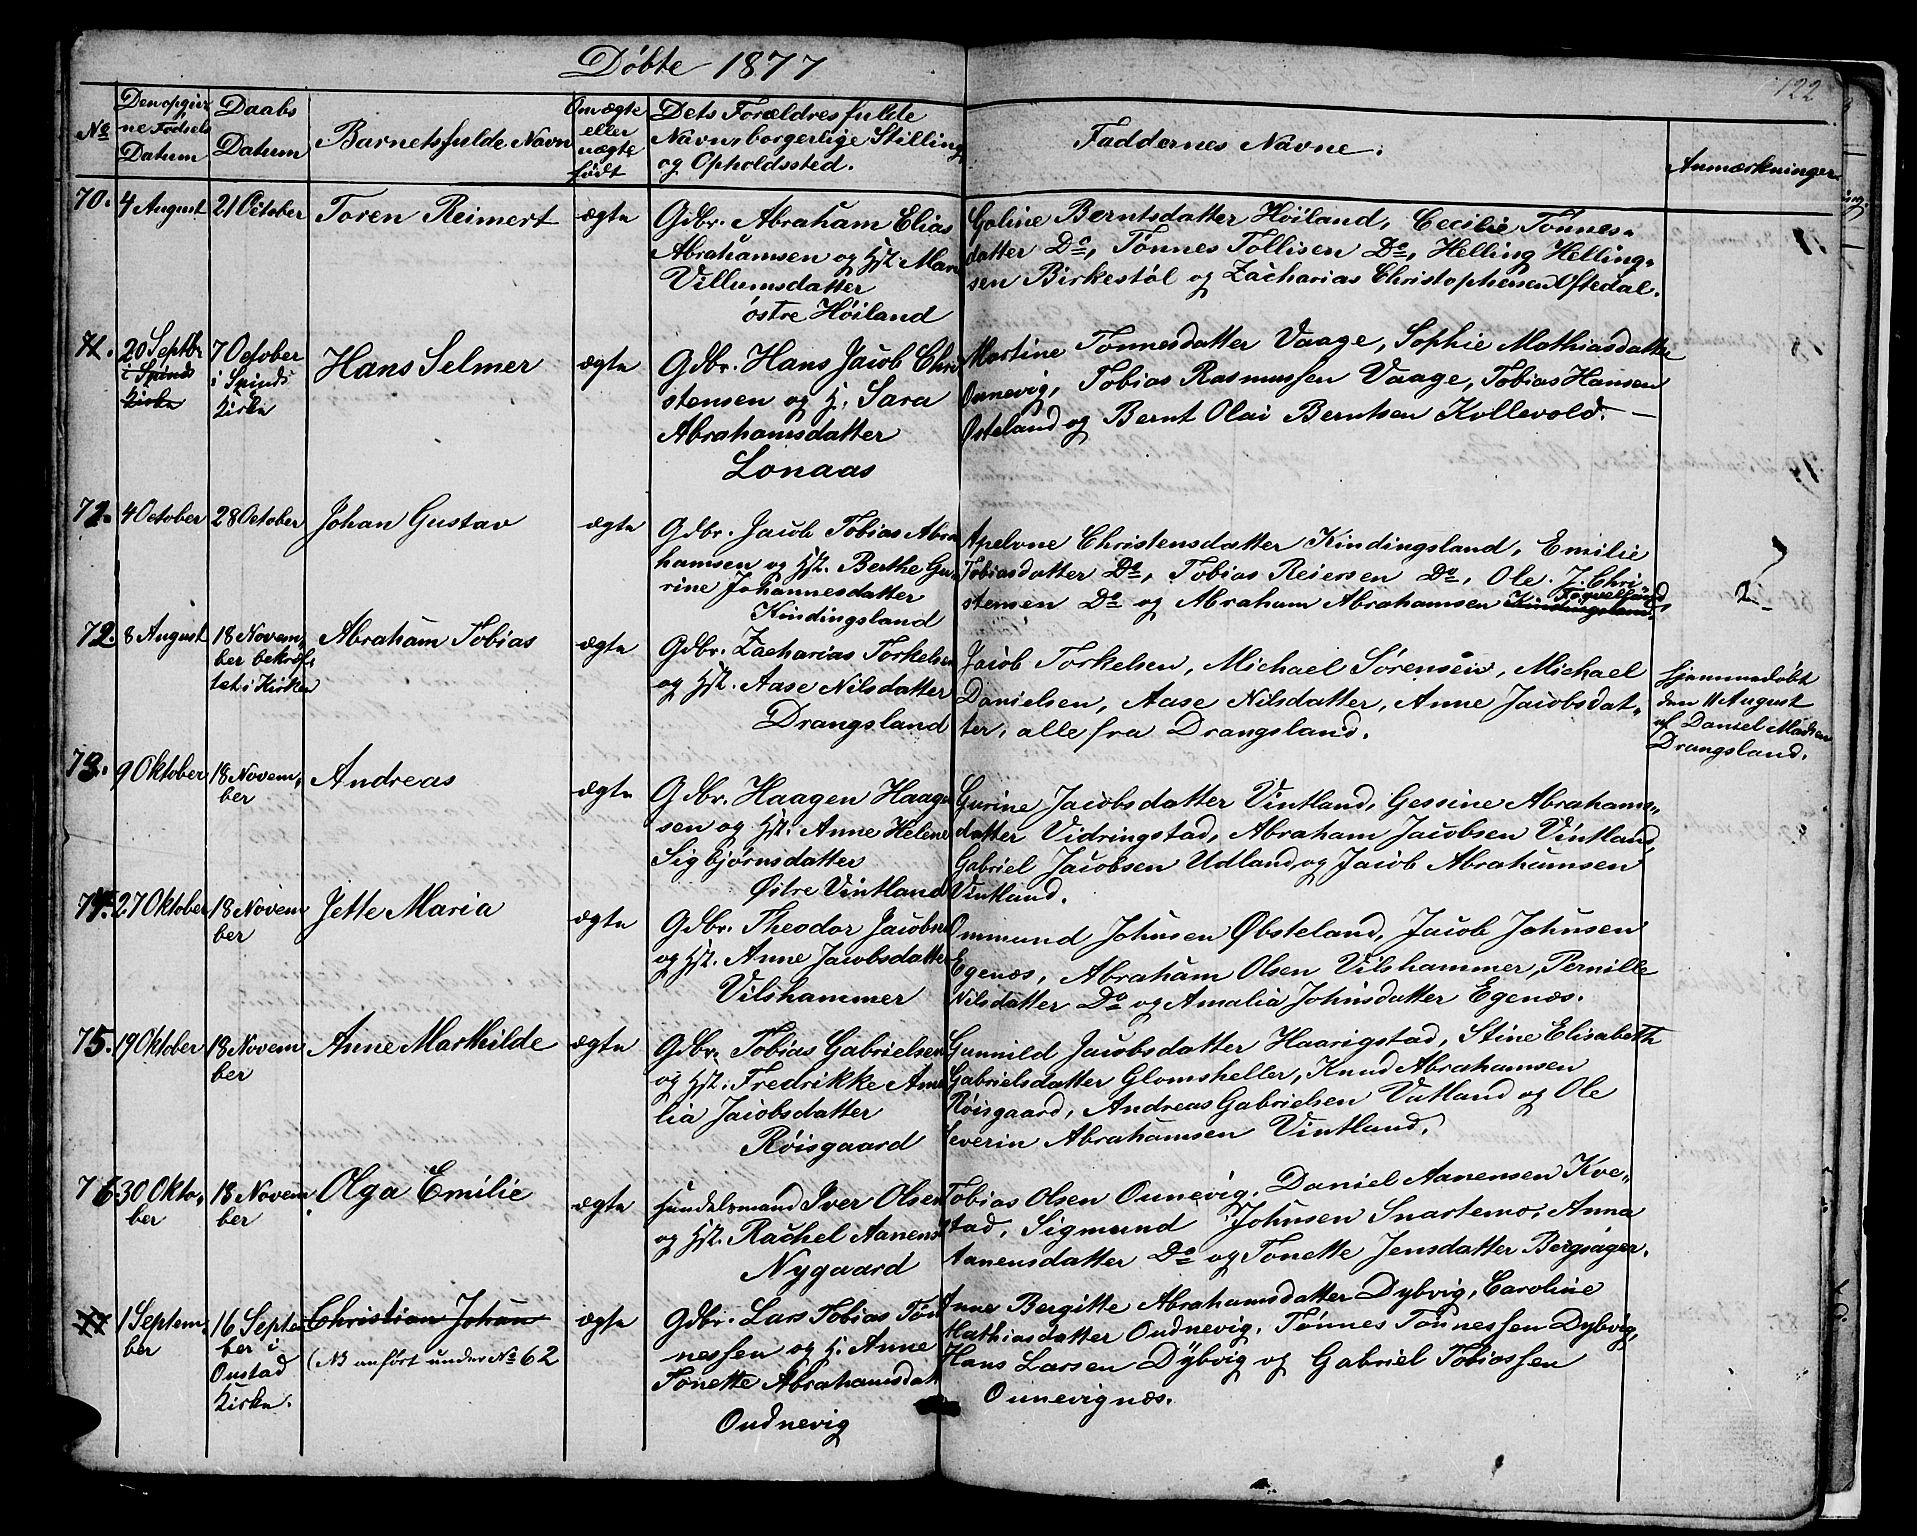 Döbte 1877
122
No
Den opgiv-
ne Fødsels
Datum
Daabs
Datum
Barnets fulde Navn
Om ægte
eller
uægte
født
Dets Forældres fulde
Navn borgerlige Stilling
og Opholdssted.
Faddernes Navne.
Anmærkninger
70. 4 August
21 October
Toren Reimert
ægte
Gdbr. Abraham Elias
Abrahamsen og Hst. Mare
Villumsdatter
østre Høiland
Goline Berntsdatter Høiland, Cecilie Tønnes-
datter Do, Tønnes Tollisen Do, Helling Helling-
sen Birkestøl og Zacharias Christophersen Oftedal.
71. 20 Septbr
i Spinds
Kirke
7 October
i Spinds
Kirke
Hans Selmer
ægte
Gdbr. Hans Jacob Chri
stensen og H. Sara
Abrahamsdatter
Lonaas
Martine Tønnesdatter Vaage, Sophie Mathiasdatter
Ounevig, Tobias Rasmussen Vaage, Tobias Hansen
Osteland og Bernt Olai Berntsen Kollevold. —
72. 4 October
28 October
Johan Gustav
ægte
Gdbr. Jacob Tobias Abra
hamsen og Hst. Berthe Gu
rine Johannesdatter
Kindingsland
Apelone Christensdatter Kindingsland, Emilie
Tobiasdatter Do, Tobias Reiersen Do, Ole J. Chri-
stensen Do og Abraham Abrahamsen Kindingsland.
72. 8 August
18 Novem-
ber bekræf-
tet i Kirken
Abraham Tobias
ægte
Gdbr. Zacharias Torkelsen
og Hst. Aase Nilsdatter
Drangsland
Jacob Torkelsen, Michael Sørensen, Michael
Danielsen, Aase Nilsdatter, Anne Jacobsdat-
ter, alle fra Drangsland.
Hjemmedøbt
den 11 August
af Daniel Madsen
Drangsland.
73. 9 Oktober
18 Novem-
ber
Andreas
ægte
Gdbr. Haagen Haagen
sen og Hst. Anne Helene
Sigbjørnsdatter
Østre Vintland
Gurine Jacobsdatter Vintland, Gessine Abrahams-
datter Vidringstad, Abraham Jacobsen Vintland,
Gabriel Jacobsen Udland, og Jacob Abrahamsen
Vintland.
74. 27 Oktober
18 Novem
ber
Jette Maria
ægte
Gdbr. Theodor Jacobsen
og Hst. Anne Jacobsdatter
Vilshammer
Ommund Johnsen Øbsteland, Jacob Johnsen
Egenæs, Abraham Olsen Vilshammer, Pernille
Nilsdatter Do og Amalia Johnsdatter Egenæs.
75. 19 Oktober
18 Novem
ber
Anne Mathilde
ægte
Gdbr. Tobias Gabrielsen
og Hst. Fredrikke Ama
lia Jacobsdatter
Røisgaard
Gunnild Jacobsdatter Haarigstad, Stine Elisabeth
Gabrielsdatter Glomsheller, Knud Abrahamsen
Røisgaard, Andreas Gabrielsen Vatland og Ole
Severin Abrahamsen Vintland.
76. 30 Okto-
ber
18 Novem
ber
Olga Emilie
ægte
Handelsmand Iver Olsen
og Hst. Rachel Aanens
Nygaard
Tobias Olsen Ounevig, Daniel Aanensen Kve-
stad, Sigmund Johnsen Snartemo, Anna
Aanensdatter Do og Tonette Jensdatter Bergsager.
77 1 Septem-
ber
16 Septem
ber i
Oustad
Kirke.
Christian Johan
(NB anført under No 62
ægte
Gdbr. Lars Tobias Tøn
nessen og H. Anne
Tonette Abrahamsdat
Oudnevig
Anne Bergitte Abrahamsdatter Dybvig, Caroline
Mathiasdatter Oudnevig, Tønnes Tønnessen Dybvig,
Hans Larsen Dybvig og Gabriel Tobiassen
Ounevignæs.